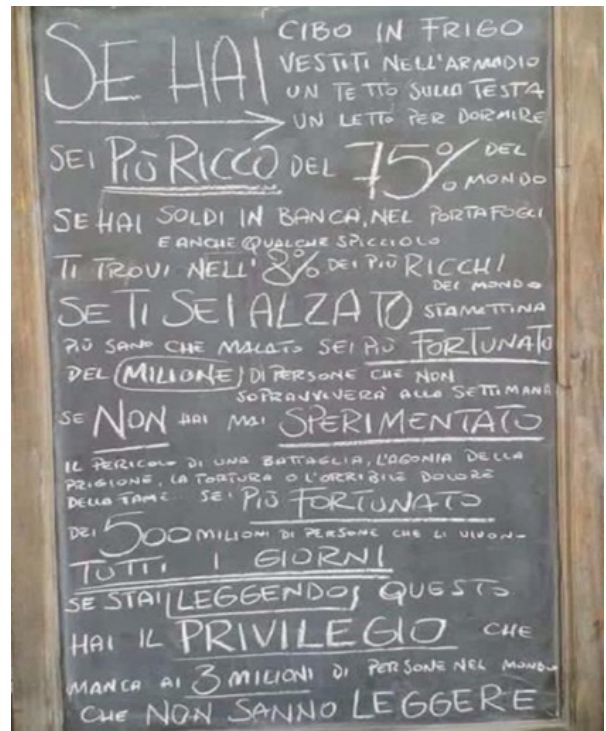 SE HAI CIBO IN FRIGO
VESTITI NELL'ARMADIO
UN TETTO SULLA TESTA
UN LETTO PER DORMIRE
SEI PIÙ RICCO DEL 75% DEL
MONDO
SE HAI SOLDI IN BANCA, NEL PORTAFOGLI
E ANCHE QUALCHE SPICCIOLO
TI TROVI NELL'8% DEI PIÙ RICCHI
DEL MONDO
SE TI SEI ALZATO STAMATTINA
PIÙ SANO CHE MALATO SEI PIÙ FORTUNATO
DEL MILIONE DI PERSONE CHE NON
SOPRAVVIVERÀ ALLA SETTIMANA
SE NON HAI MAI SPERIMENTATO
IL PERICOLO DI UNA BATTAGLIA, L'AGONIA DELLA
PRIGIONE, LA TORTURA O L'ORRIBILE DOLORE
DELLA FAME SEI PIÙ FORTUNATO
DEI 500 MILIONI DI PERSONE CHE LI VIVON
TUTTI I GIORNI
SE STAI LEGGENDO QUESTO
HAI IL PRIVILEGIO CHE
MANCA AI 3 MILIONI DI PERSONE NEL MONDO
CHE NON SANNO LEGGERE